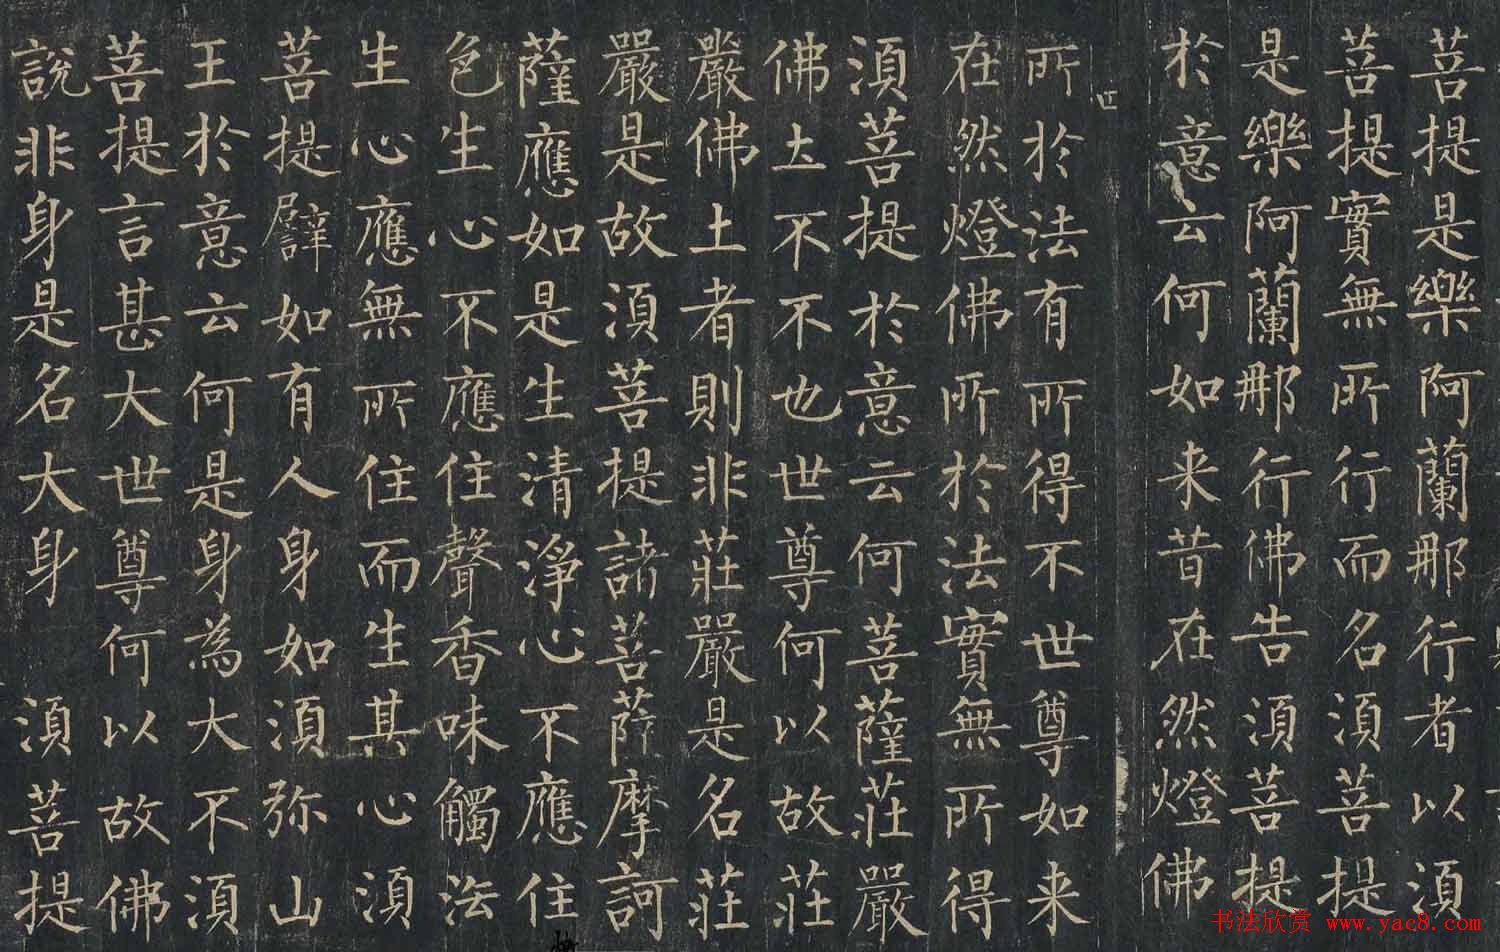 菩提是樂阿蘭那行者以須
菩提實無所行而名須菩提
是樂阿蘭那行佛告須菩提
於意云何如来昔在然燈佛
所於法有所得不世尊如来
在然燈佛所於法實無所得
須菩提於意云何菩薩莊嚴
佛土不不也世尊何以故莊
嚴佛土者則非莊嚴是名莊
嚴是故須菩提諸菩薩摩訶
薩應如是生清淨心不應住
色生心不應住聲香味觸法
生心應無所住而生其心須
菩提譬如有人身如須弥山
王於意云何是身為大不須
菩提言甚大世尊何以故佛
說非身是名大身 須菩提
书法欣赏 www.yac8.com